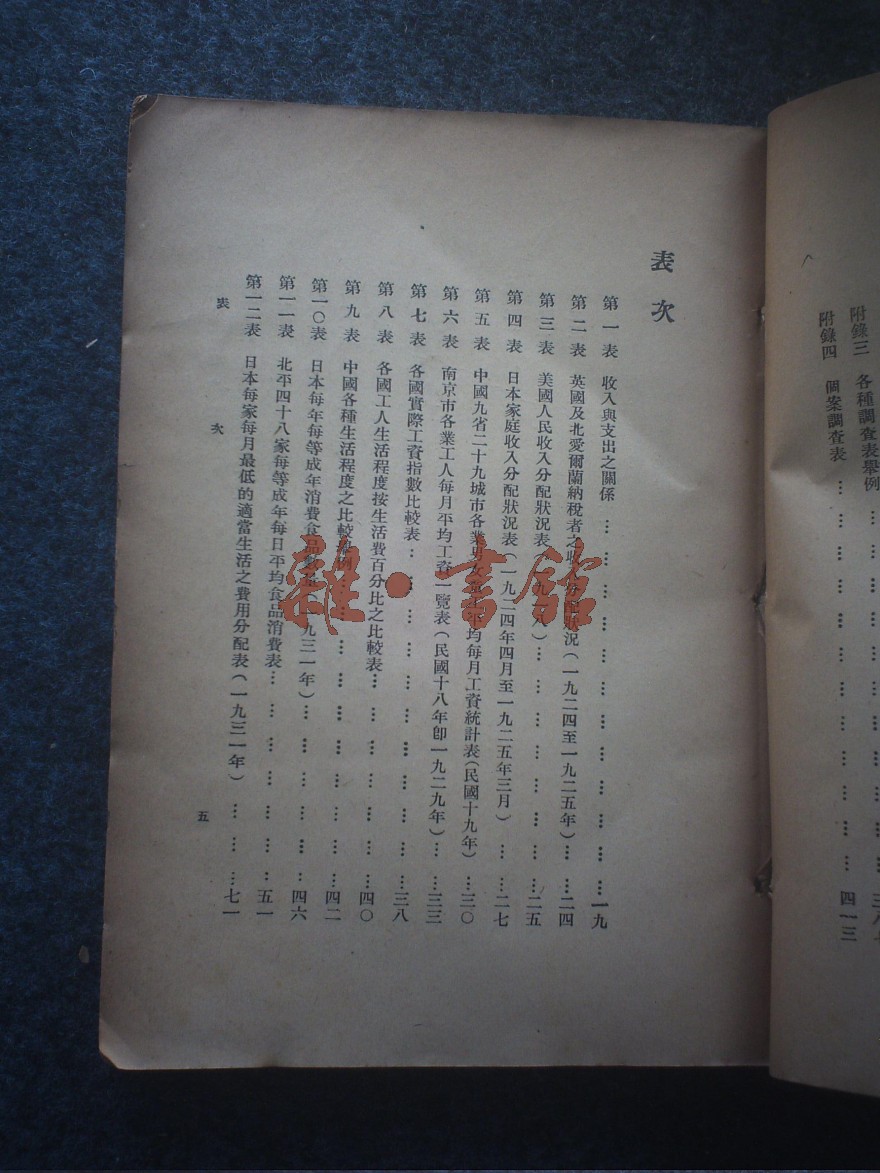 附錄三 各種調查表舉例 … … … … … … … … … … 三八
附錄四 個案調查表 … … … … … … … … … … 四一三
表次
第一表 收入與支出之關係 … … … … … … … … … … … … … 一九
第二表 英國及北愛爾蘭納稅者之收 分配狀況(一九二四至一九二五年)… … 二四
第三表 美國人民收入分配狀況表(一九 八)… … … … … … … 二五
第四表 日本家庭收入分配狀況表(一九二四年四月至一九二五年三月) … … 二七
第五表 中國九省二十九城市各業男女 工平均每月工資統計表(民國十九年)…三〇
第六表 南京市各業工人每月平均工資一覽表(民國十八年卽一九二九年)… …三三
第七表 各國實際工資指數比較表… … … … … … … … … … …三八
第八表 各國工人生活程度按生活費百分比之比較表… … … … … … …四〇
第九表 中國各種生活程度之比較 例 … … … … … … … … … …四二
第一〇表 日本每年每等成年消費食品數量(一九三一年)… … … … … … 四六
第一一表 北平四十八家每等成年每日平均食品消費表… … … … … … … 五一
第一二表 日本每家每月最低的適當生活之費用分配表(一九三一年) … … …七一
表次 五
雜·書館